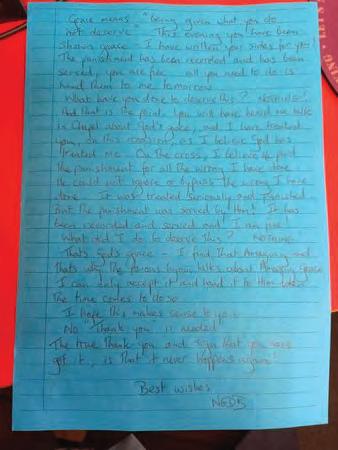 Grace means "being given what you do
not deserve". This evening you have been
shown grace - I have written your sides for you!
The punishment has been recorded and has been
served, you are free - all you need to do is
hand them to me tomorrow.
What have you done to deserve this? NOTHING!
And that is the point. You will have heard me talk
in Chapel about God's grace, and I have treated
you, on this occasion, as I believe God has
treated me. On the cross, I believe He paid
the punishment for all the wrong I have done.
He could not ignore or bypass the wrong I have
done. It was treated seriously and punished
But the punishment was served by Him! It has
been recorded and served and I am free.
What did I do to deserve this? NOTHING.
That's God's grace - I find that Amazing and
that's why the famous hymn talks about Amazing Grace
I can only accept it and hand it to Him when
the time comes to do so.
I hope this makes sense to you.
No "Thank you" is needed!
The true thank you and sign that you have
got it, is that it never happens again!
Best wishes